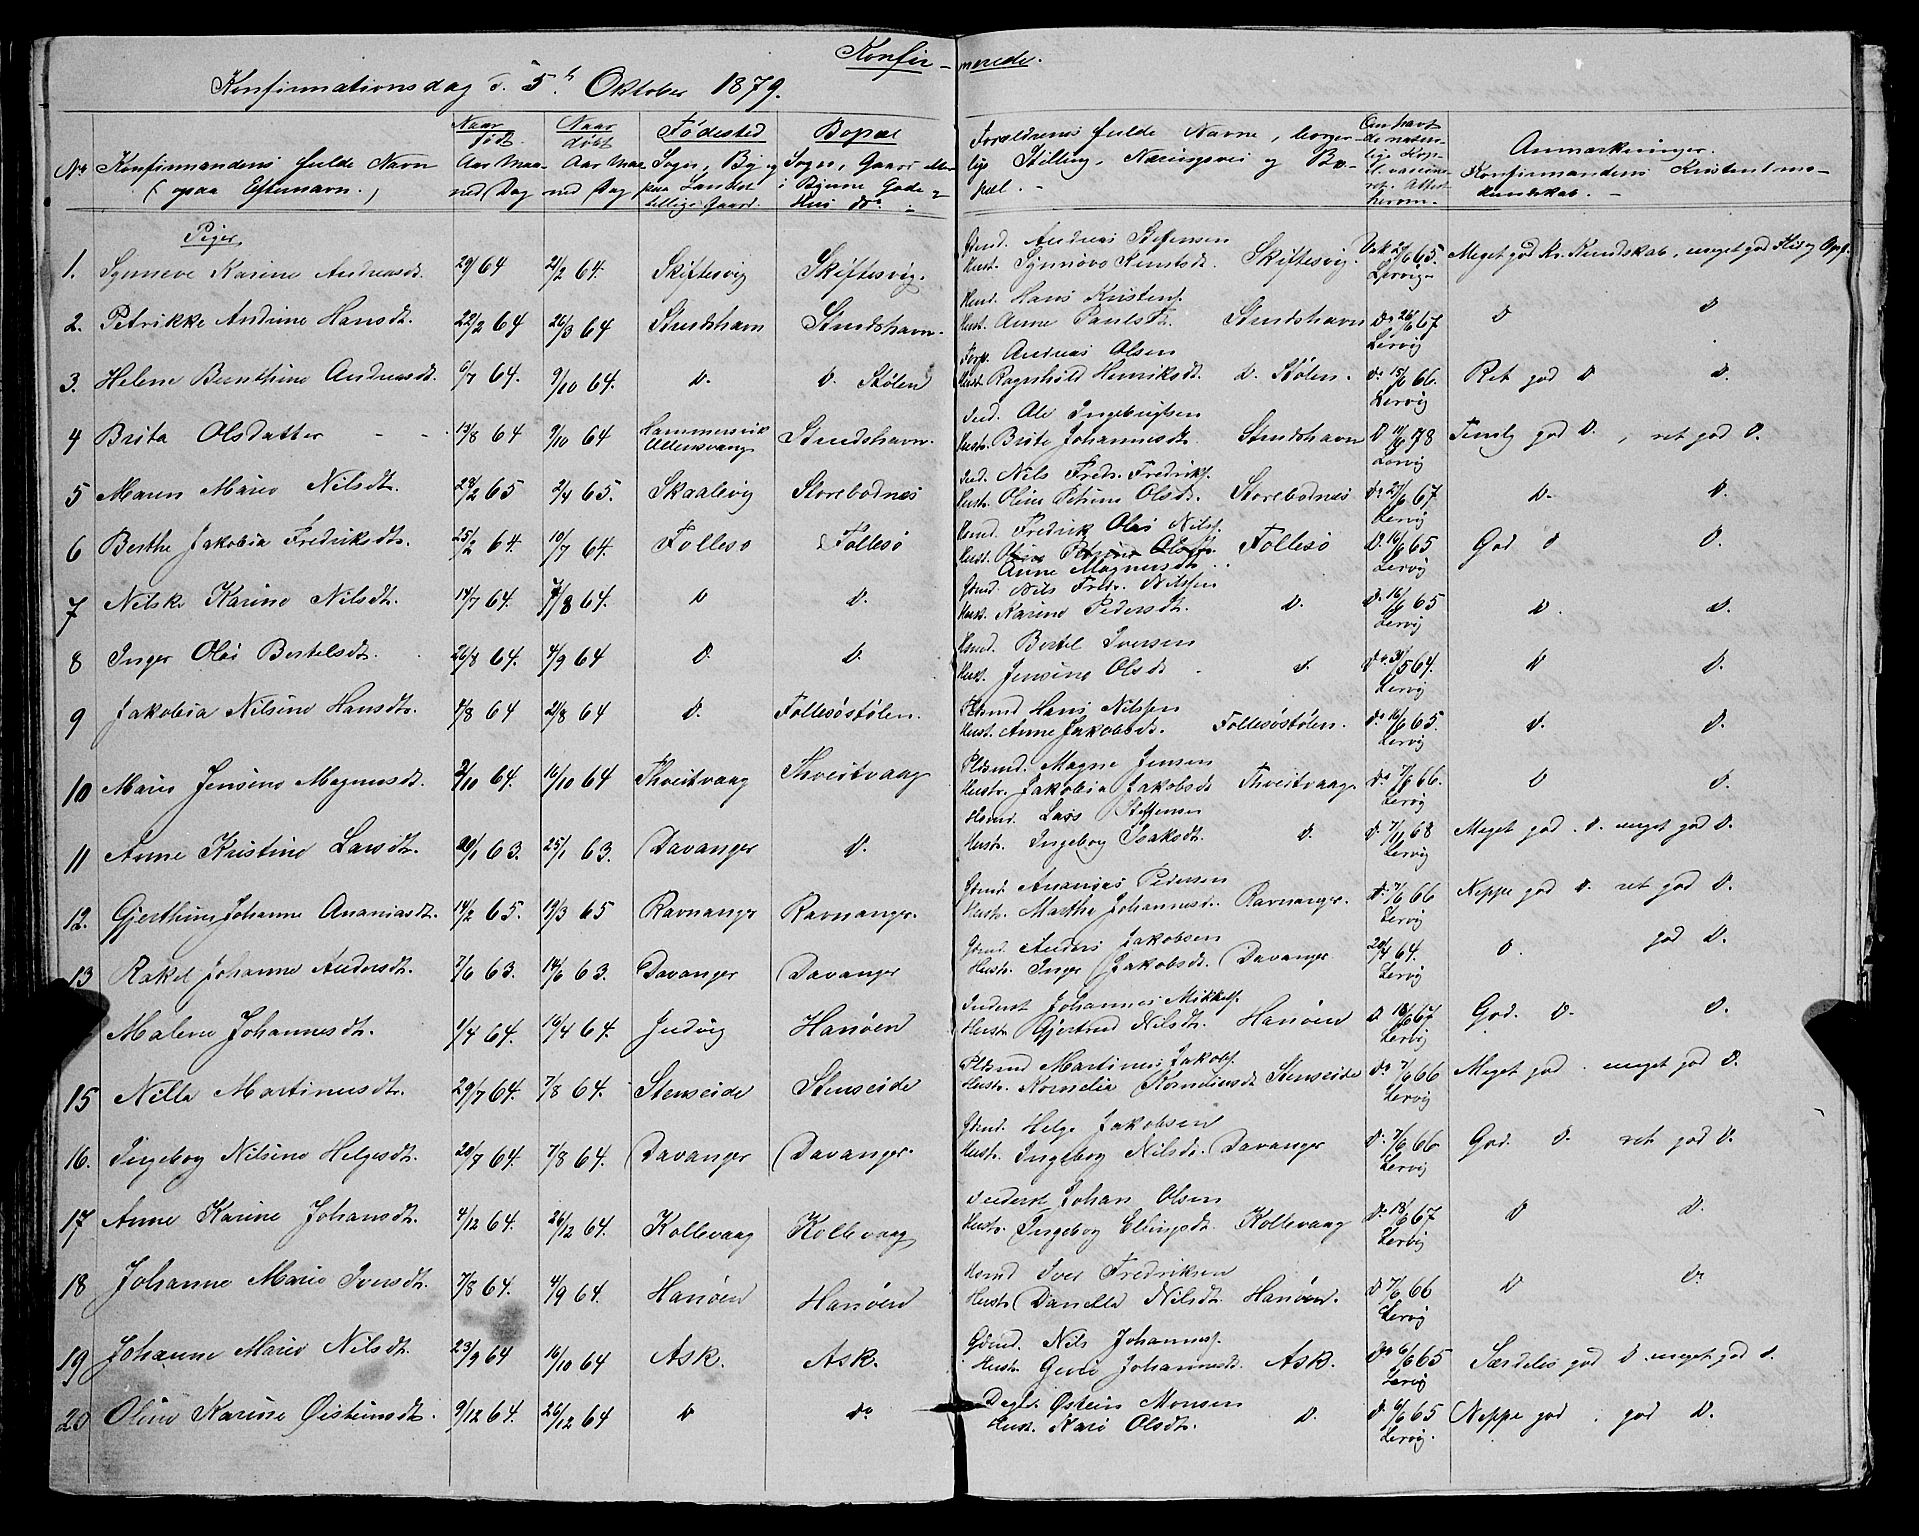 Konfir - merede.
Konfirmationsdag d. 5. Oktober 1879.
No Konfirmandens fulde Navn (ogsaa Efternavn.) Naar født. Aar Maaned Dag Naar døbt Aar Maaned Dag Fødested Sogn, By og paa Landet tillige Gaard. Bopæl Sogn, Gaard eller i Byerne Gade og Hus No. Forældrenes fulde Navne, borgerlig Stilling, Næringsvei og Bopæl. - Anmærkninger. Konfirmandens Kristendomskundskab. -
Piger
1. Synneve Karine Andreasdt. 29/ 64 21/2 64. Skiftesvig Skiftesvig. Gbmd. Andreas Steffensen Hust. Synnøve Knutsdt. Skiftesvig. Vak. 65. Lervig Meget god Kr. Kundskab, meget god Flid og Opf.
2. Petrikke Andrine Hansdt. 22/2 64 26/3 64 Strudshavn Strudshavn. Hans Kristens. Hust. Anne Paulsdt. Strudshavn Do 26/6 67 Lervig D D
3. Helene Bernthine Andreasdt. 6/7 64. 9/10 64. D. D. Stølen Andreas Olsen Hust. Ragnhild Henriksdt. D. Stølen. Do 15/6 66. Lervig Ret god D D.
4 Brita Olsdatter - - 13/8 64 9/10 64 Hammersvik Ullensvang Strudshavn. Ind. Ole Ingebrigtsen Hust. Brite Johannesdt. Strudshavn D 78 Lervig Temlig god D., ret god D.
5 Maren Marie Nilsdt. 23/2 65 2/4 65. Skaalevig Storebodnes Ind. Nils Fredr. Fredriks. Hust. Oline Petrine Olsdt. Storebodnes Do 27/6 67 Lervig D. D.
6 Berthe Jakobia Fredriksdt. 25/2 64. 10/7 64. Follesø Follesø Fredrik Olai Nils. Hust. Oline Petrine Olsdt. Anne Magnusdt. Follesø D. 16/6 65 Lervig God D D.
7 Nilske Karine Nilsdt. 14/7 64. 7/8 64. D D. Gbmd. Nils Fredr. Nilssen Hust. Karine Pedersdt. D. D. 16/6 65 Lervig D. D.
8 Inger Olai Bertelsdt. 26/8 64. 4/9 64 D. D. Bertel Iversen Hust. Jensine Olsdt D. Do 31/5 64. Lervig D D.
9 Jakobia Nilsine Hansdt. 1/8 64 21/8 64 D. Follesøstølen. Plsmd Hans Nilssen Hust. Anne Jakobsdt. Follesøstølen. Do 16/6 65. Lervig D. D.
10 Marie Jensine Magnusdt. 2/10 64. 16/10 64 Thveitvaag Thveitvaag Plsmd. Magne Jensen Hustr. Jakobia Jakobsdt Thveitvaag. Do 7/6 66. Lervig D D.
11 Anne Kristine Larsdt. 20/1 63. 25/1 63. Davanger D. Lars Steffensen Hustr. Ingebog Isaksdt. D. D. 7/11 68 Lervig Meget god. D. meget god D.
12. Gjerthine Johanne Ananiasdt. 14/2 65. 19/3 65 Ravnanger Ravnanger. Gbmd. Ananias Pedersen Hustr. Marthe Johannesdt. Ravnanger. D. 7/6 66 Lervig Neppe god D. ret god D.
13 Rakel Johanne Andersdt. 7/6 63. 14/6 63. Davanger Davanger Gbmd. Anders Jakobsen Hustr. Inger Jakobsdt. Davanger 29/4 64. Lervig D. god D.
Malene Johannesdt. 1/4 64. 16/4 64. Juvig Hanøen Inderst Johannes Mikkels. Hust. Gjertrud Nilsdt. Hanøen D. 18/6 67 Lervig God. D. D.
15 Nille Martinusdt. 29/7 64. 7/8 64. Stenseide Stenseide Plsmd Martinus Jakobs. Hustr. Kornelie Korneliusdt Stenseide Do 7/6 66 Lervig Meget god. meget god D.
16. Ingebog Nilsine Helgesdt. 20/7 64. 7/8 64. Davanger Davanger. Gbmd. Helge Jakobsen Hustr. Ingebog Nilsdt. Davanger D. 7/6 66 Lervig God. D. ret god D.
17 Anne Karine Johansdt. 4/12 64. 26/12 64. Kollevaag Kollevaag Inderst Johan Olsen Hust. Ingebog Ellingsdt. Kollevaag D. 18/6 67 Lervig D D.
18 Johanne Marie Iversdt. 7/8 64. 4/9 64. Hanøen Hanøen Iver Fredriksen Hustr. Danelle Nilsdt. Hanøen. D 7/6 66 Lervig D D.
19 Johanne Marie Nilsdt. 23/9 64 16/10 64 Ask. Ask. Gbmd. Nils Johanness. Hust. Guri Johannesdt. Ask. Do 6/6 65 Lervig Særdeles god D. meget god D.
20 Oline Karine Øisteinsdt. 9/12 64. 26/12 64 D Do Østein Monsen Hust. Kari Olsdt. D. D. 6/6 65 Lervig. Neppe god. god D.